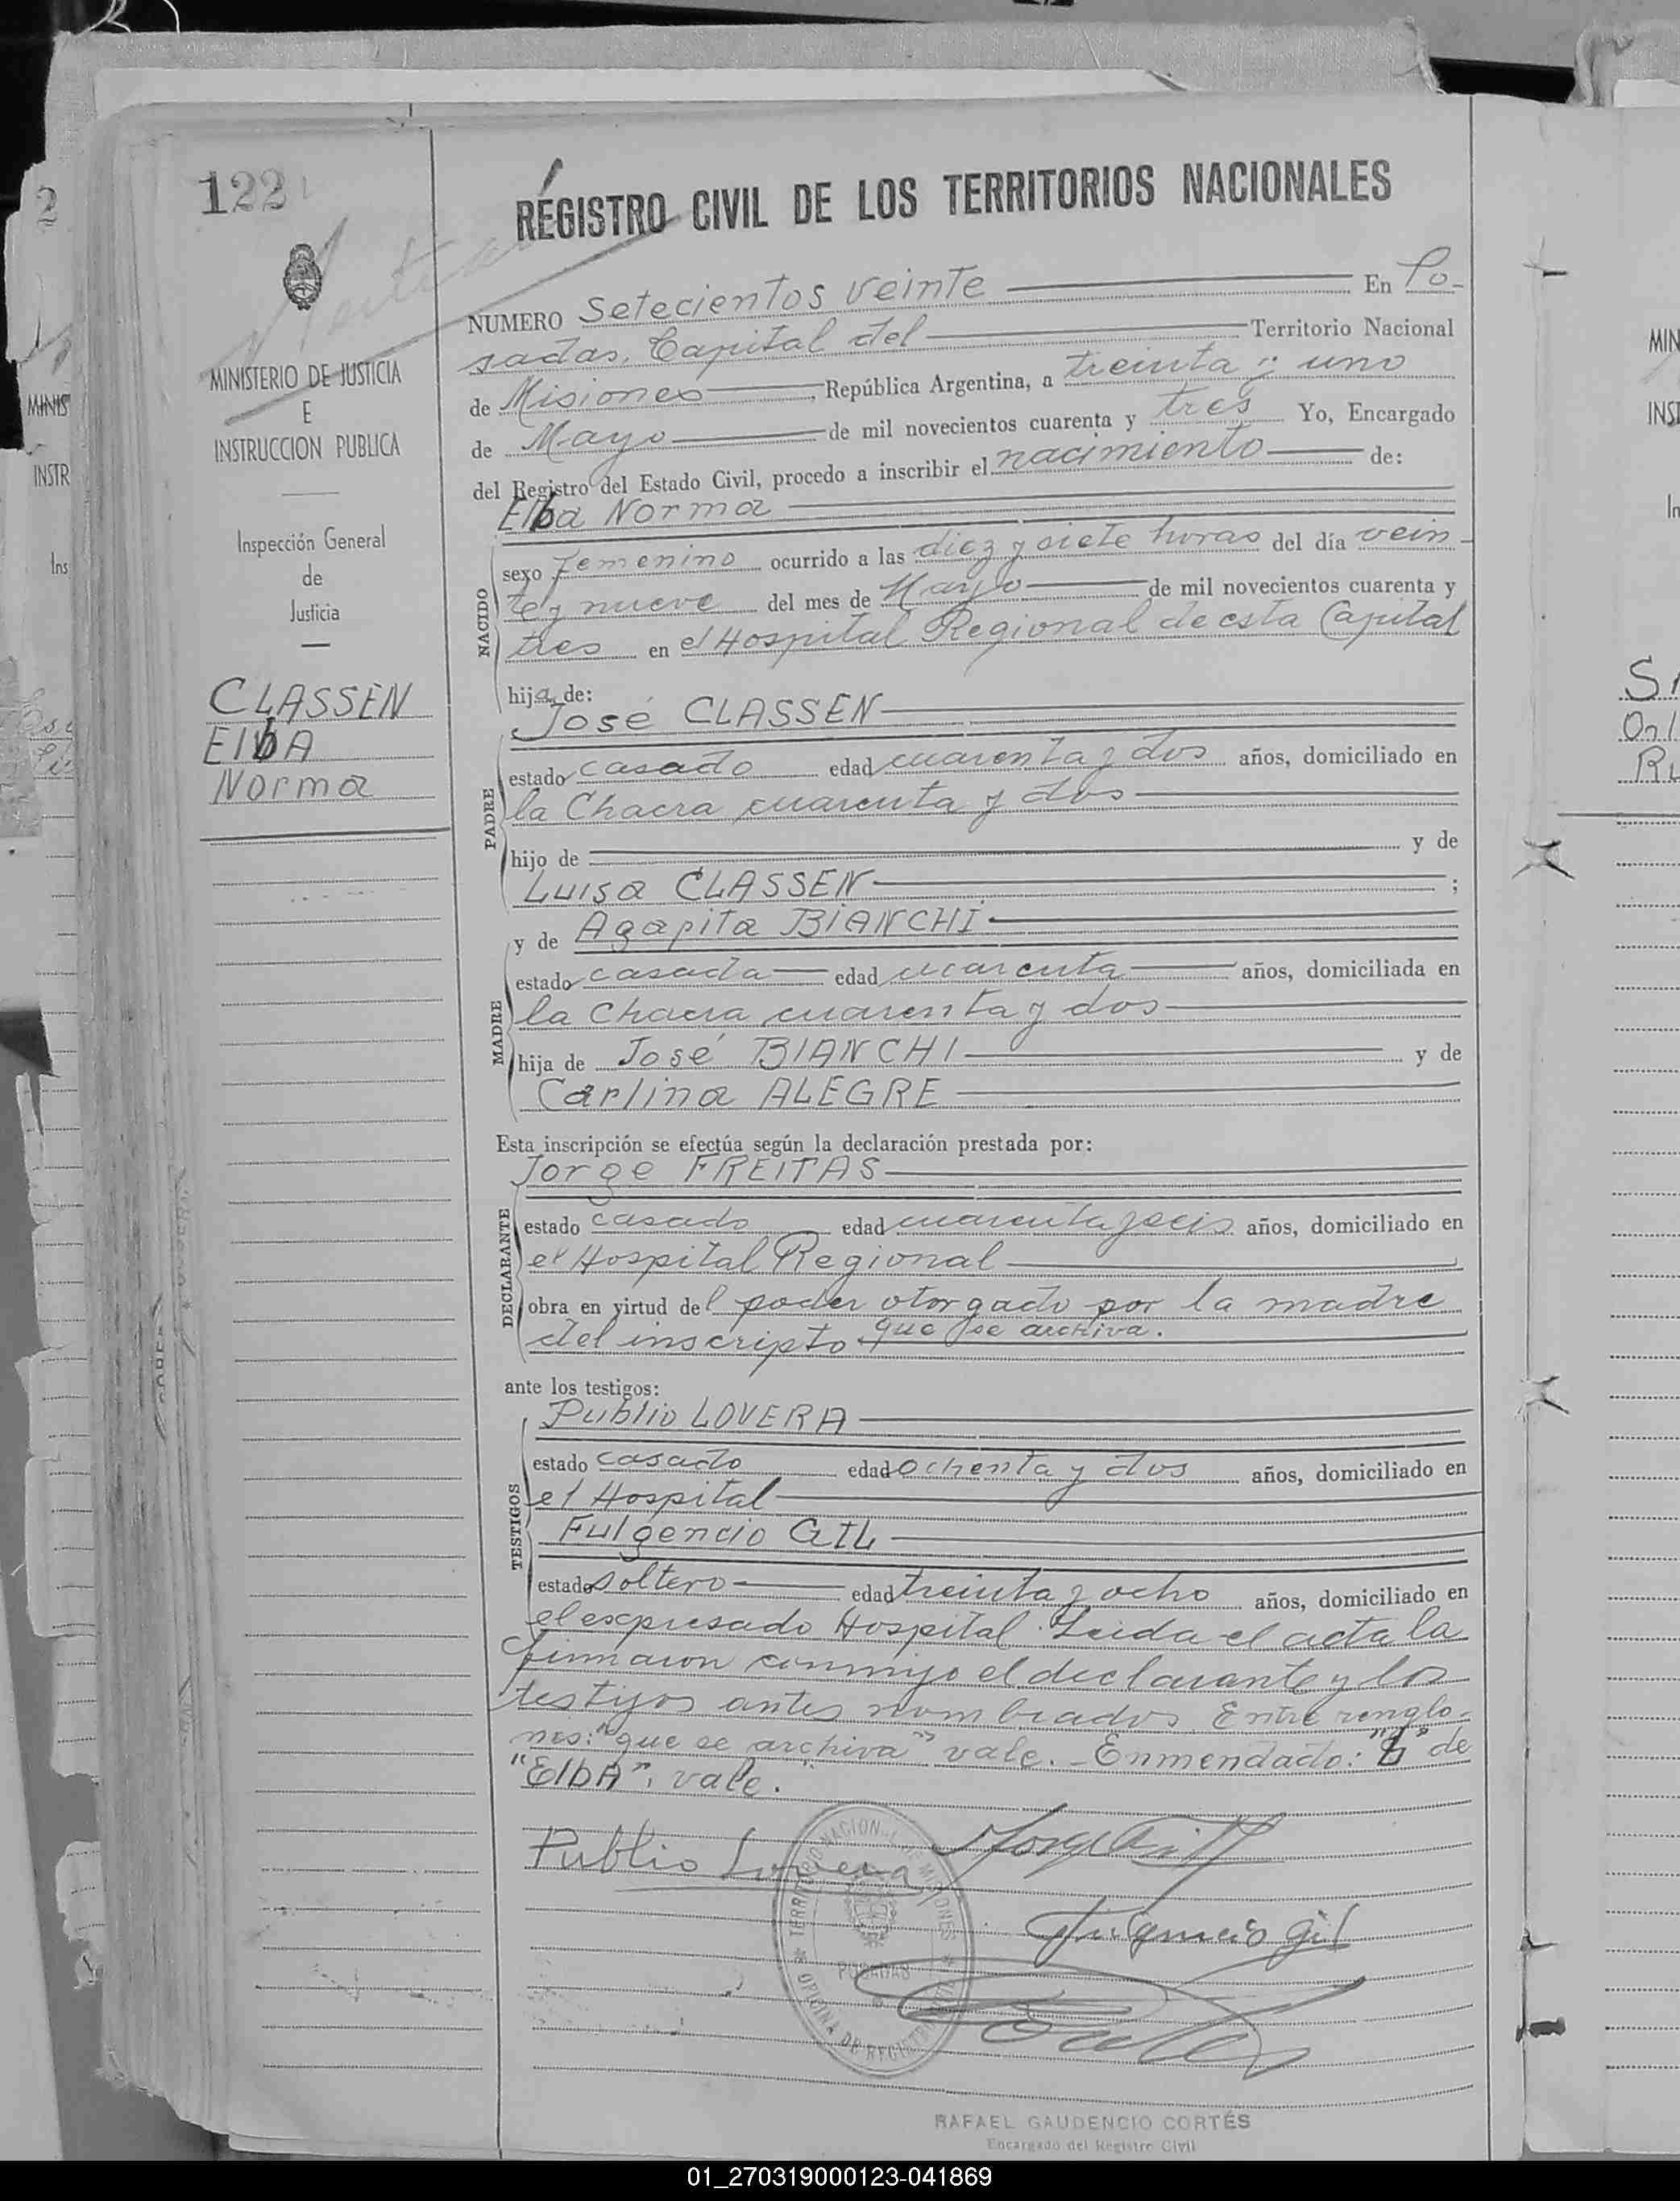 122
REGISTRO CIVIL DE LOS TERRITORIOS NACIONALES
MINISTERIO DE JUSTICIA
E
INSTRUCCION PUBLICA
Inspección General
de
Justicia
CLASSEN
ElbA
Norma
NUMERO Setecientos veinte En Po-
sadas, Capital del Territorio Nacional
de Misiones, República Argentina, a treinta y uno
de Mayo de mil novecientos cuarenta y tres Yo, Encargado
del Registro del Estado Civil, procedo a inscribir el nacimiento de:
Elba Norma
NACIDO
sexo femenino ocurrido a las diez y siete horas del día vein-
te y nueve del mes de Mayo de mil novecientos cuarenta y
tres en el Hospital Regional de esta Capital
hija de:
José CLASSEN
PADRE
estado casado edad cuarenta y dos años, domiciliado en
la Chacra cuarenta y dos
hijo de y de
Luisa CLASSEN ;
y de Agapita BIANCHI
MADRE
estado casada edad cuarenta años, domiciliada en
la Chacra cuarenta y dos
hija de José BIANCHI y de
Carlina ALEGRE
Esta inscripción se efectúa según la declaración prestada por:
Jorge FREITAS
DECLARANTE
estado casado edad cuarenta y seis años, domiciliado en
el Hospital Regional
obra en virtud del poder otorgado por la madre
del inscripto que se archiva.
ante los testigos:
Publio LOVERA
TESTIGOS
estado casado edad ochenta y dos años, domiciliado en
el Hospital
Fulgencio GIL
estado soltero edad treinta y ocho años, domiciliado en
el expresado Hospital. Leida el acta la
firmaron conmigo el declarante y los
testigos antes nombrados. Entre renglo-
nes: "que se archiva" vale. - Enmendado: "b" de
"ElbA", vale.
Publio Lovera
Fulgencio Gil
TERRITORIO NACIONAL DE MISIONES
POSADAS
OFICINA DE REGISTRO CIVIL
RAFAEL GAUDENCIO CORTÉS
Encargado del Registro Civil
01_270319000123-041869